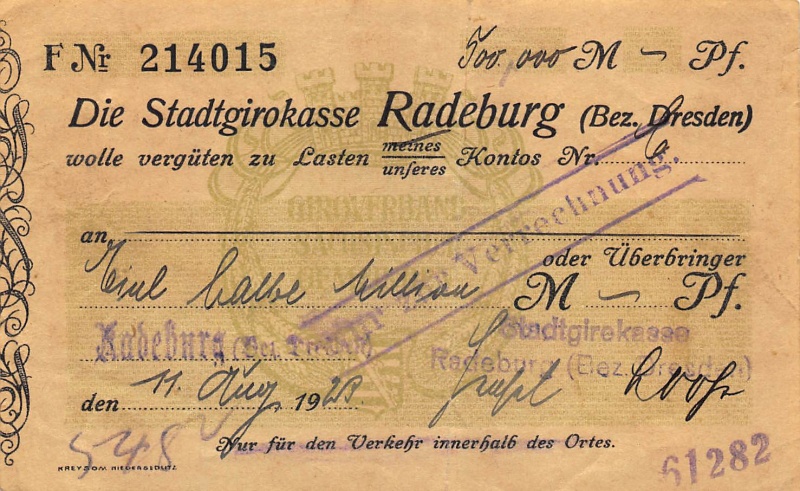 F Nr 214015 500,000 M — Pf.
Die Stadtgirokasse Radeburg (Bez. Dresden)
wolle vergüten zu Lasten meines unseres Kontos Nr. 6
Nur zur Verrechnung.
an
oder Überbringer
Eine halbe Million M — Pf.
Radeburg (Bez. Dresden)
Stadtgirokasse
Radeburg (Bez. Dresden)
den 11. Aug. 1923
Nur für den Verkehr innerhalb des Ortes.
61282